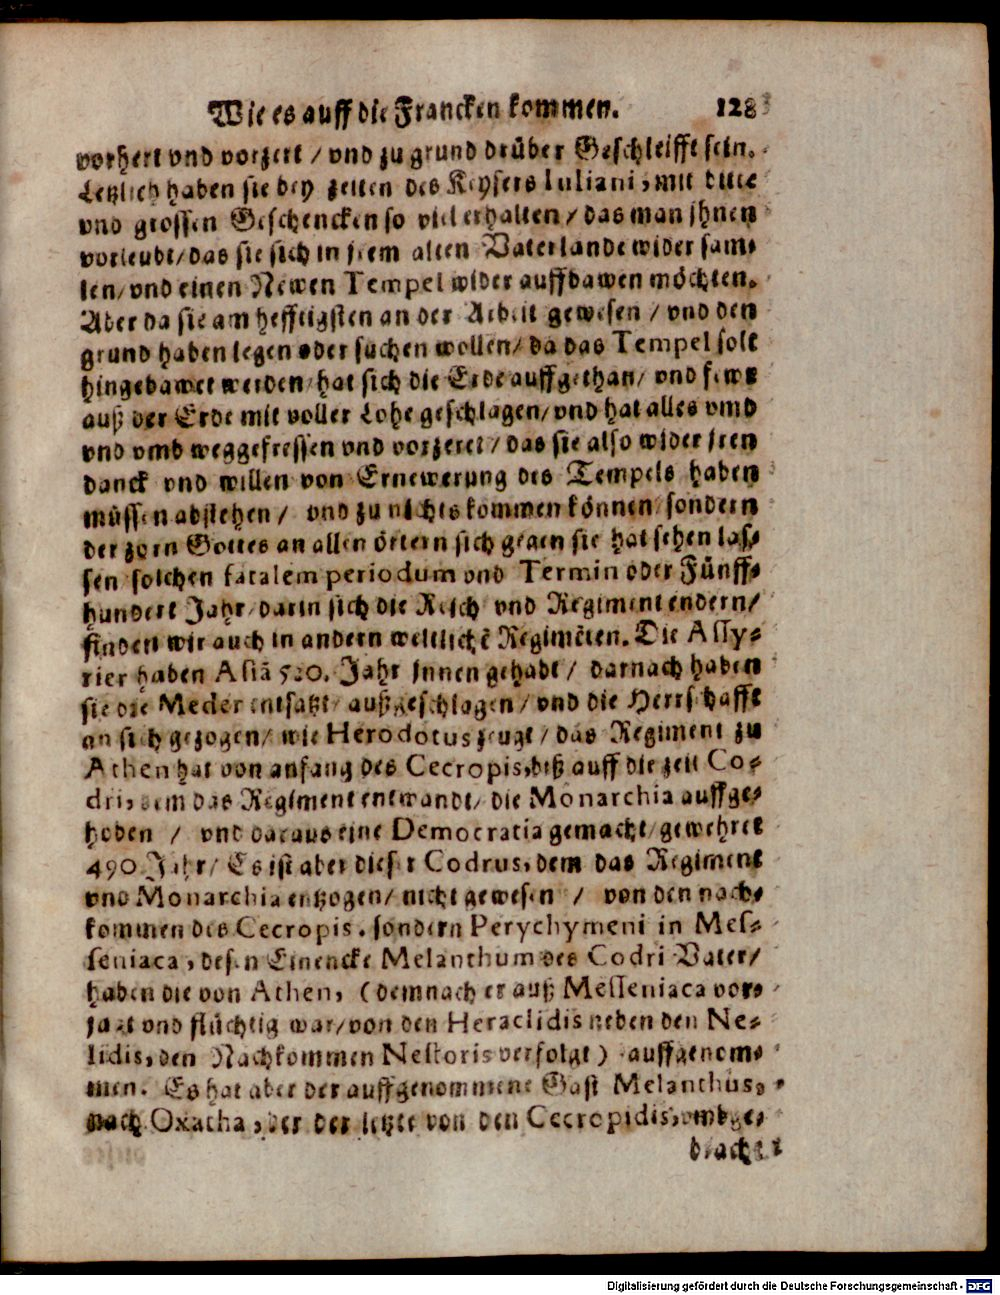 Wie es auff die Francken kommen. 128
vorhert vnd vorzert / vnd zu grund drüber Geschleifft sein.
Letzlich haben sie bey zeiten des Keysers Iuliani, mit bitte
vnd grossen Geschencken so viel erhalten / das man jhnen
vorleubt / das sie sich in jrem alten Vaterlande wider sam⸗
len / vnd einen Newen Tempel wider auffbawen möchten.
Aber da sie am hefftigsten an der Arbeit gewesen / vnd den
grund haben legen oder suchen wollen / da das Tempel solt
hingebawet werden / hat sich die Erde auffgethan / vnd fewr
auß der Erde mit voller Lohe geschlagen / vnd hat alles vmb
vnd vmb weggefressen vnd vorzeret / das sie also wider jren
danck vnd willen von Ernewerung des Tempels haben
müssen abstehen / vnd zu nichts kommen können / sondern
der zorn Gottes an allen örtern sich gegen sie hat sehen las⸗
sen solchen fatalem periodum vnd Termin oder Fünff⸗
hundert Jahr / darin sich die Reich vnd Regiment endern /
finden wir auch in andern weltlichē Regimēten. Die Assy⸗
rier haben Asiā 520. Jahr Innen gehabt / darnach haben
sie die Meder entsatzt / außgeschlagen / vnd die Herrschafft
an sich gezogen / wie Herodotus zeugt / das Regiment zu
Athen hat von anfang des Cecropis, biß auff die zeit Co⸗
dri, dem das Regiment entwandt / die Monarchia auffge⸗
hoben / vnd daraus eine Democratia gemacht / gewehret
490. Jahr / Es ist aber dieser Codrus, dem das Regiment
vnd Monarchia entzogen / nicht gewesen / von den nach⸗
kommen des Cecropis. sondern Perychymeni in Mes⸗
seniaca, desen Einencke Melanthum des Codri Vater /
haben die von Athen, (demnach er auß Messeniaca vor⸗
jagt vnd flüchtig war / von den Heraclidis neben den Ne⸗
lidis, den Nachkommen Nestoris verfolgt) auffgenom⸗
men. Es hat aber der auffgenommene Gast Melanthus,
nach Oxatha, der der letzte von den Cecropidis, vmbge⸗
bracht
Digitalisierung gefördert durch die Deutsche Forschungsgemeinschaft - DFG